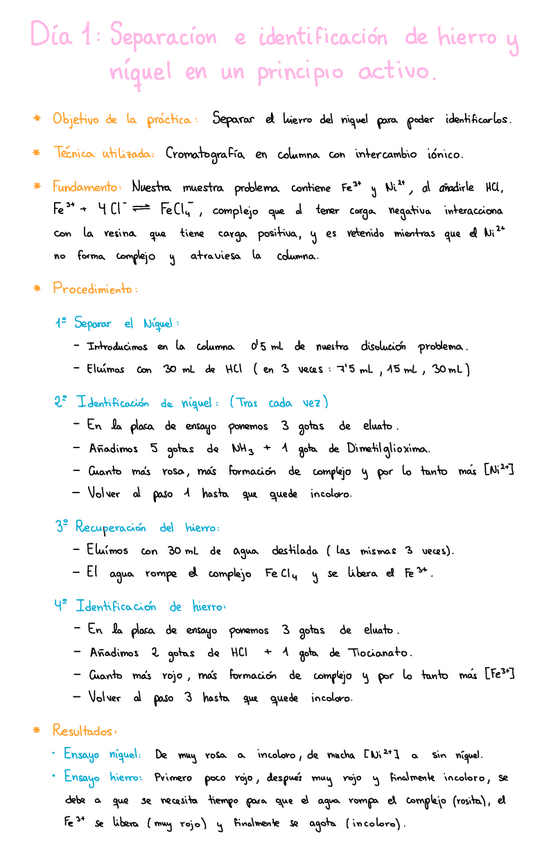 Día 1: Separación e identificación de hierro y
níquel en un principio activo.
* Objetivo de la práctica: Separar el hierro del niquel para poder identificarlos.
* Técnica utilizada: Cromatografía en columna con intercambio iónico.
* Fundamento: Nuestra muestra problema contiene Fe³⁺ y Ni²⁺, al añadirle HCl,
Fe³⁺ + 4 Cl⁻ ⇌ FeCl₄⁻, complejo que al tener carga negativa interacciona
con la resina que tiene carga positiva, y es retenido mientras que el Ni²⁺
no forma complejo y atraviesa la columna.
* Procedimiento:
1º Separar el Níquel:
- Introducimos en la columna 0'5 mL de nuestra disolución problema.
- Eluímos con 30 mL de HCl (en 3 veces: 7'5 mL, 15 mL, 30 mL)
2º Identificación de níquel: (Tras cada vez)
- En la placa de ensayo ponemos 3 gotas de eluato.
- Añadimos 5 gotas de NH₃ + 1 gota de Dimetilglioxima.
- Cuanto más rosa, más formación de complejo y por lo tanto más [Ni²⁺]
- Volver al paso 1 hasta que quede incoloro.
3º Recuperación del hierro:
- Eluímos con 30 mL de agua destilada (las mismas 3 veces).
- El agua rompe el complejo FeCl₄ y se libera el Fe³⁺.
4º Identificación de hierro:
- En la placa de ensayo ponemos 3 gotas de eluato.
- Añadimos 2 gotas de HCl + 1 gota de Tiocianato.
- Cuanto más rojo, más formación de complejo y por lo tanto más [Fe³⁺]
- Volver al paso 3 hasta que quede incoloro.
* Resultados:
· Ensayo níquel: De muy rosa a incoloro, de mucha [Ni²⁺] a sin níquel.
· Ensayo hierro: Primero poco rojo, después muy rojo y finalmente incoloro, se
debe a que se necesita tiempo para que el agua rompa el complejo (rosita), el
Fe³⁺ se libera (muy rojo) y finalmente se agota (incoloro).